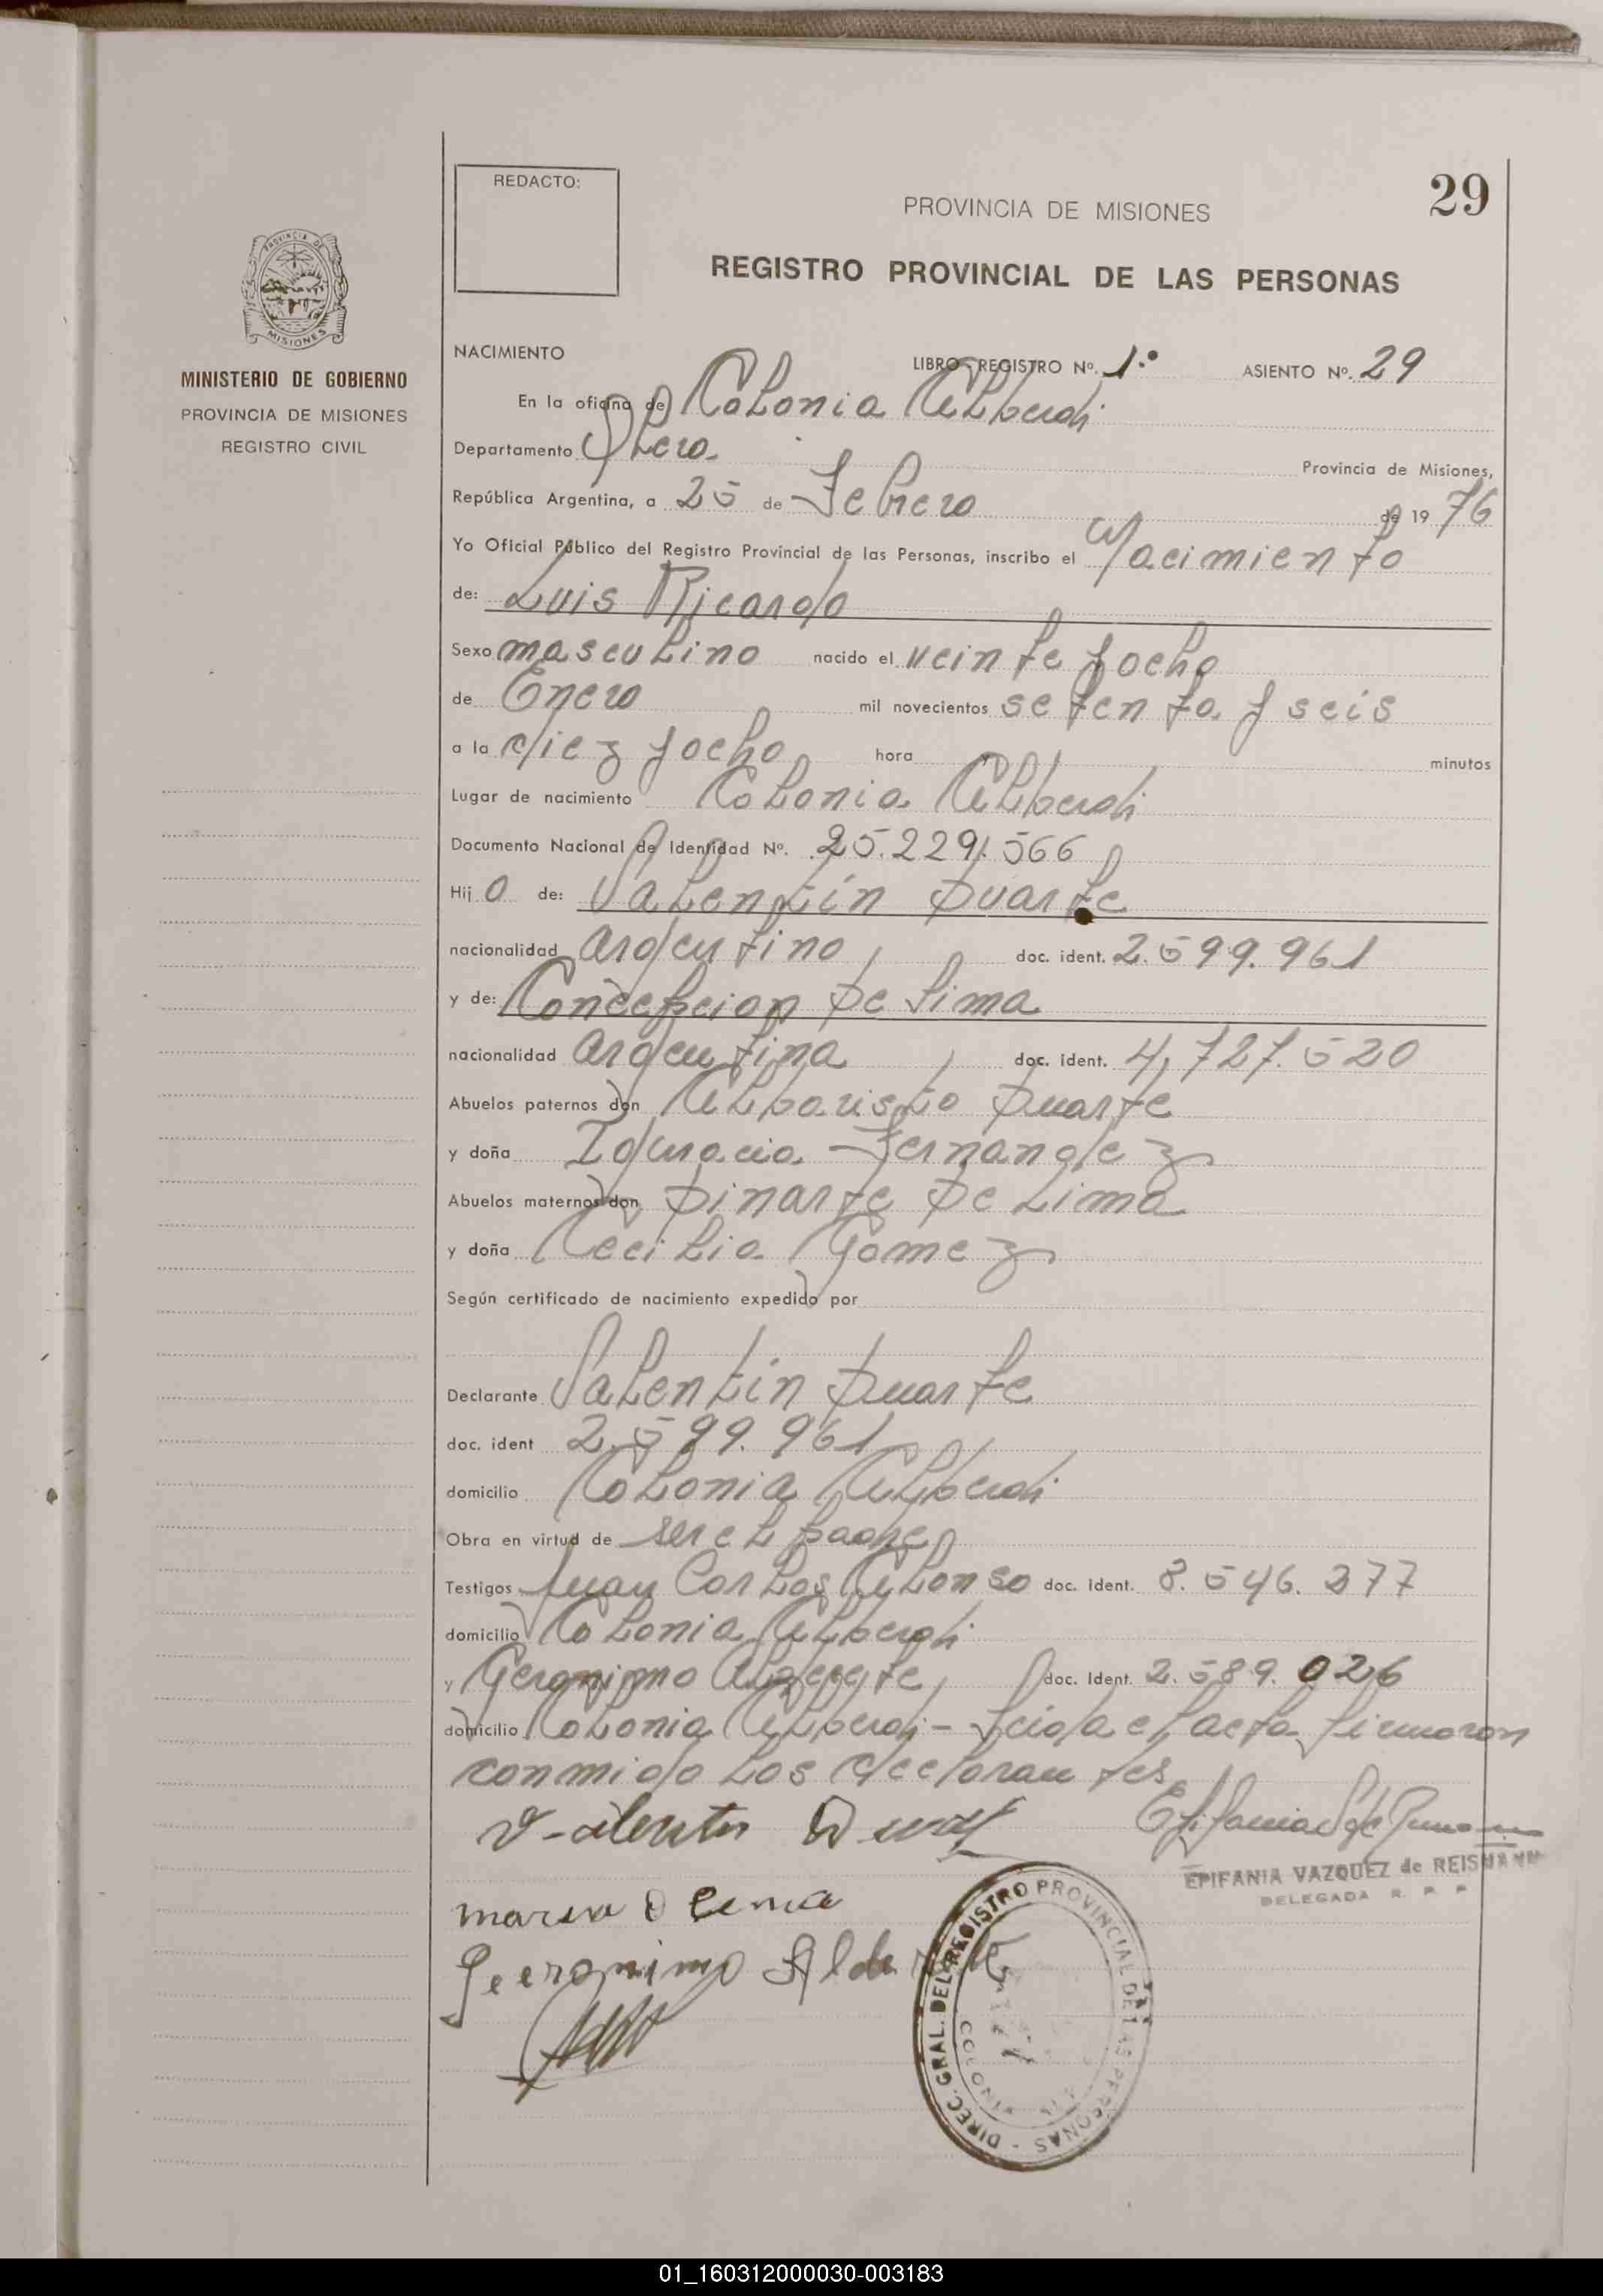 REDACTO:
29
PROVINCIA DE MISIONES
REGISTRO PROVINCIAL DE LAS PERSONAS
PROVINCIA DE
MISIONES
MINISTERIO DE GOBIERNO
PROVINCIA DE MISIONES
REGISTRO CIVIL
NACIMIENTO LIBRO - REGISTRO Nº. 1º ASIENTO Nº. 29
En la oficina de Colonia Alberdi
Departamento Obera Provincia de Misiones,
República Argentina, a 25 de Febrero de 1976
Yo Oficial Público del Registro Provincial de las Personas, inscribo el Nacimiento
de: Luis Ricardo
Sexo masculino nacido el veinte y ocho
de Enero mil novecientos setenta y seis
a la diez y ocho hora minutos
Lugar de nacimiento Colonia Alberdi
Documento Nacional de Identidad Nº. 25.229.566
Hijo de: Valentin Duarte
nacionalidad argentino doc. ident. 2.599.961
y de: Concepcion De Lima
nacionalidad argentina doc. ident. 4,727.520
Abuelos paternos don Duarte
y doña Ignacia Fernandez
Abuelos maternos don Dinarte De Lima
y doña Cecilia Gomez
Según certificado de nacimiento expedido por
Declarante Valentin Duarte
doc. ident 2.599.961
domicilio Colonia Alberdi
Obra en virtud de ser el padre
Testigos Juan Carlos Alonso doc. Ident. 8.546.277
domicilio Colonia Alberdi
y Geronimo doc. Ident. 2.589.026
domicilio Colonia Alberdi - Leida el acta firmaron
conmigo los declarantes
EPIFANIA VAZQUEZ de REISMANN
DELEGADA R. P. P
DIREC. GRAL. DEL REGISTRO PROVINCIAL DE LAS PERSONAS -
Geeronimo
01_160312000030-003183